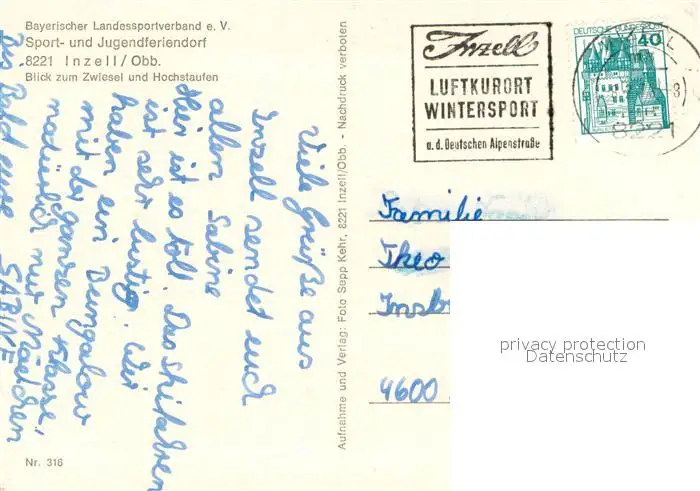 Bayerischer Landessportverband e. V.
Sport- und Jugendferiendorf
8221 Inzell/Obb.
Blick zum Zwiesel und Hochstaufen
Viele Grüße aus
Inzell sendet euch
allen Sabine
Hier ist es toll. Das Skifahren
ist sehr lustig. Wir
haben ein Bungalow
mit der ganzen Klasse,
natürlich nur Mädchen
Bis Bald eure SABINE
Nr. 316
Aufnahme und Verlag: Foto Sepp Kehr, 8221 Inzell/Obb. - Nachdruck verboten
Inzell
LUFTKURORT
WINTERSPORT
a. d. Deutschen Alpenstraße
DEUTSCHE BUNDESPOST
40
8221
Familie
Theo
Insb
4600
privacy protection
Datenschutz